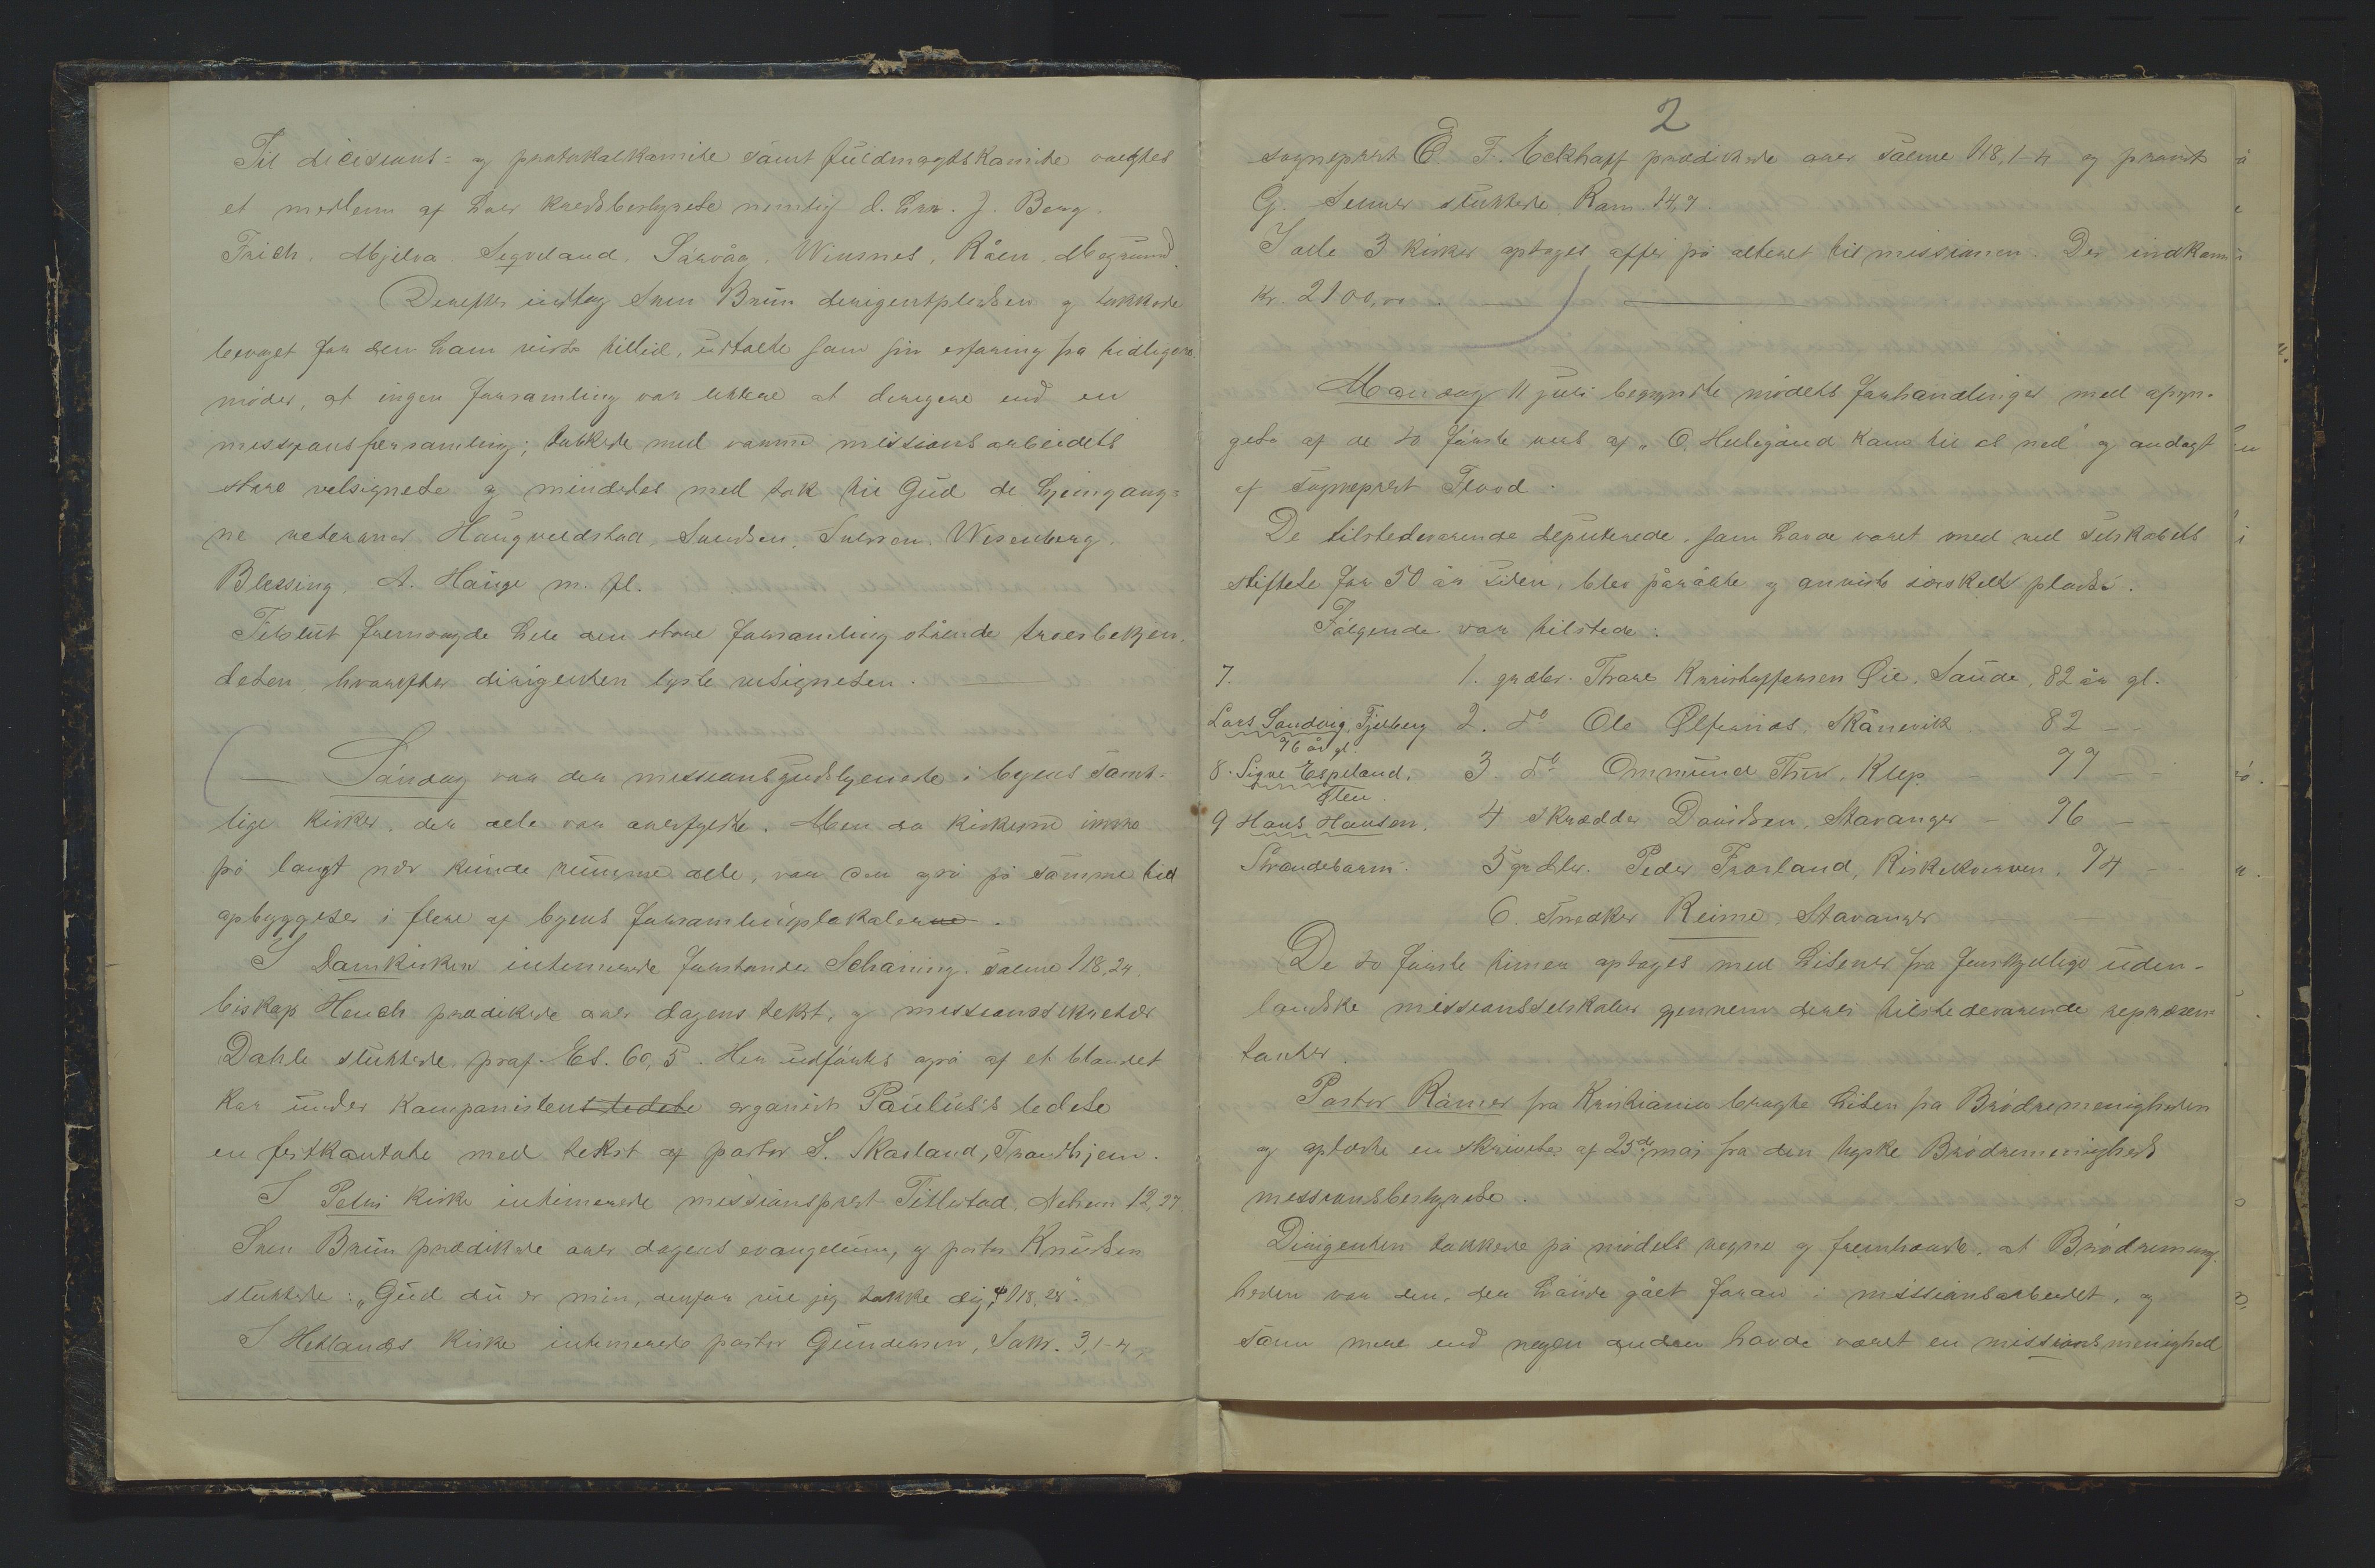 Til decisions= og protokolkomite samt fuldmagtskomite valgtes
et medlem af hver kredsbestyrelse nemlig d. hrr. J. Berg.
Frich, Mjelva. Segveland. Sárvåg. Winsnes, Råen,
Derefter indtog Sven Brun dirigentpladsen og takkede
bevæget for den ham viste tillid, udtalte som sin erfaring fra tidligere
møder, at ingen forsamling var lettere at dirigere end en
missionsforsamling; takkede med varme missionsarbeidets
store velsignelse og mindedes med tak til Gud de hjemgang=
ne veteraner Haugvaldstad, Svendsen, Wisenberg.
Blessing, A. Hauge m. fl.
Tilslut fremsagde hele den store forsamling stående troesbekjen
delsen, hvorefter dirigenten lyste velsignelsen.
Sóndag var der missionsgudstjeneste i byens samt-
lige kirker, der alle var overfyldte. Men da kirkerne
på langt nær kunde rumme alle, var der også på samme tid
opbyggelser i flere af byens forsamlingslokalerne.
I Domkirken intimerede forstander Schóning. salme 118,24
biskop Heuch prædikede over dagens tekst, og missionssekretær
Dahle sluttede prof. Es. 60,5. Her udfórtes også af et blandet
kor under komponistens ledelse organist Paulus's ledelse
en festkantate med tekst af pastor S. Skarland, Trondhjem.
I Petri kirke intimerede missionsprest Titlestad, Nehem 12,27.
Sven Brun prædikede over dagens evangelium, og pastor Knudsen
sluttede: "Gud du er min, derfor vil jeg takke dig, ψ 118,28".
I Hetlands kirke intimerede pastor Gundersen, Sakr. 3,1-4,
2
sogneprest E. F. Eckhoff prædikede over salme 118,1-4 og provst
G. sluttede Rom. 14,7.
I alle 3 kirker optoges offer på alteret til missionen. Der indkom
Kr. 2100,00.
Mandag 11 juli begyndte mødets forhandlinger med afsyn-
gelse af de to fórste vers af "O, Helligånd kom til os ned" og andagt
af sogneprest Flood.
De tilstedeværende deputerede, som havde været med ved selskabets
stiftelse for 50 år siden, blev påråbte og anviste særskilt plads.
Fólgende var tilstede:
7. 1. grdbr. Thore Kristoffersen Øie, Saude, 82 år gl.
Lars Sandvig, Fjelberg 2. do Ole Ølfernæs, Skånevik 82 - -
76 år gl.
8. Signe Espeland, 3. do Ommund Thu, Klep. - 77 - -
Ølen.
9 Hans Hansen, 4 skrædder Davidsen, Stavanger - 76 - -
Strandebarm. 5 grdbr. Peder Frosland, Kirkekvarven, 74 - -
6. Snedker Reime, Stavanger - -
De to fórste timer optoges med hilsener fra forskjellige uden-
landske missionsselskaber gjennem deres tilstedeværende repræsen-
tanter.
Pastor Rómer fra Kristiania bragte hilsen fra Brödremenigheden
og oplæste en skrivelse af 25de mai fra den tyske Brödremenigheds
missionsbestyrelse.
Dirigenten takkede på mødets vegne og fremhævede, at Brödremenig-
heden var den, der havde gået foran i missionsarbeidet, og
som mere end nogen anden havde været en missionsmenighed